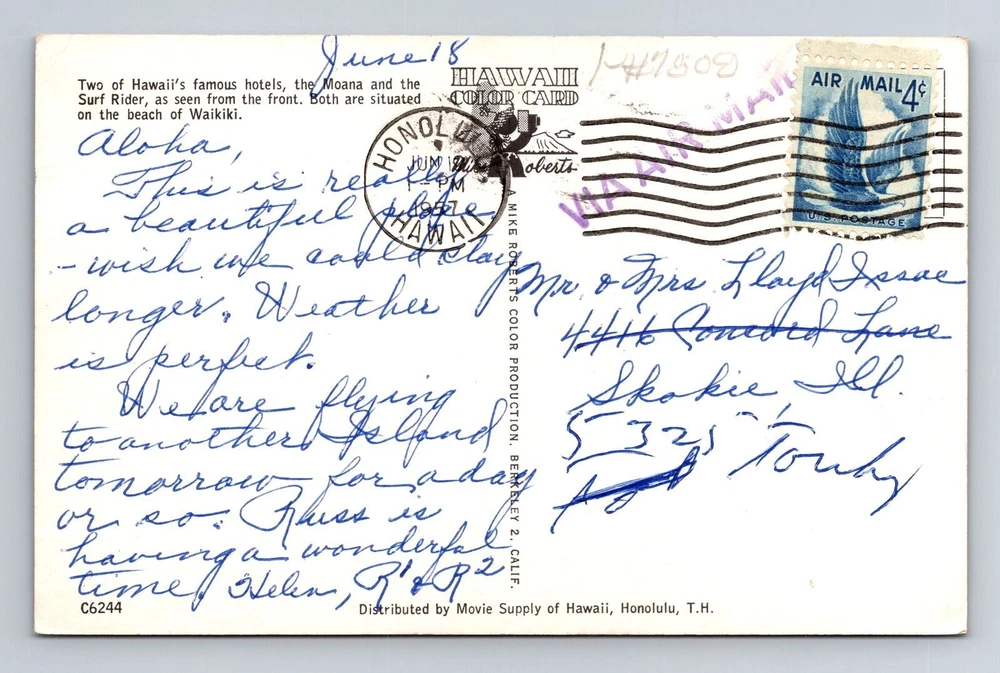 June 18
Two of Hawaii's famous hotels, the Moana and the
Surf Rider, as seen from the front. Both are situated
on the beach of Waikiki.
Aloha,
This is really
a beautiful place
- wish we could stay
longer. Weather
is perfect.
We are flying
to another Island
tomorrow for a day
or so. Russ is
having a wonderful
time. Helen, R¹ & R²
C6244
HAWAII
COLOR CARD
Mike Roberts
HONOLULU
JUN
1 - PM
1957
HAWAII
A MIKE ROBERTS COLOR PRODUCTION. BERKELEY 2. CALIF.
VIA AIR MAIL
AIR MAIL 4¢
U.S. POSTAGE
Mr. & Mrs Lloyd Issac
4416 Concord Lane
Skokie, Ill.
5325 Touhy
Distributed by Movie Supply of Hawaii, Honolulu, T.H.